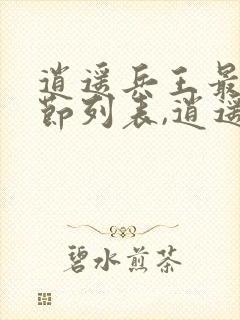 逍遥兵王最
节列表,逍遥
碧水煎茶